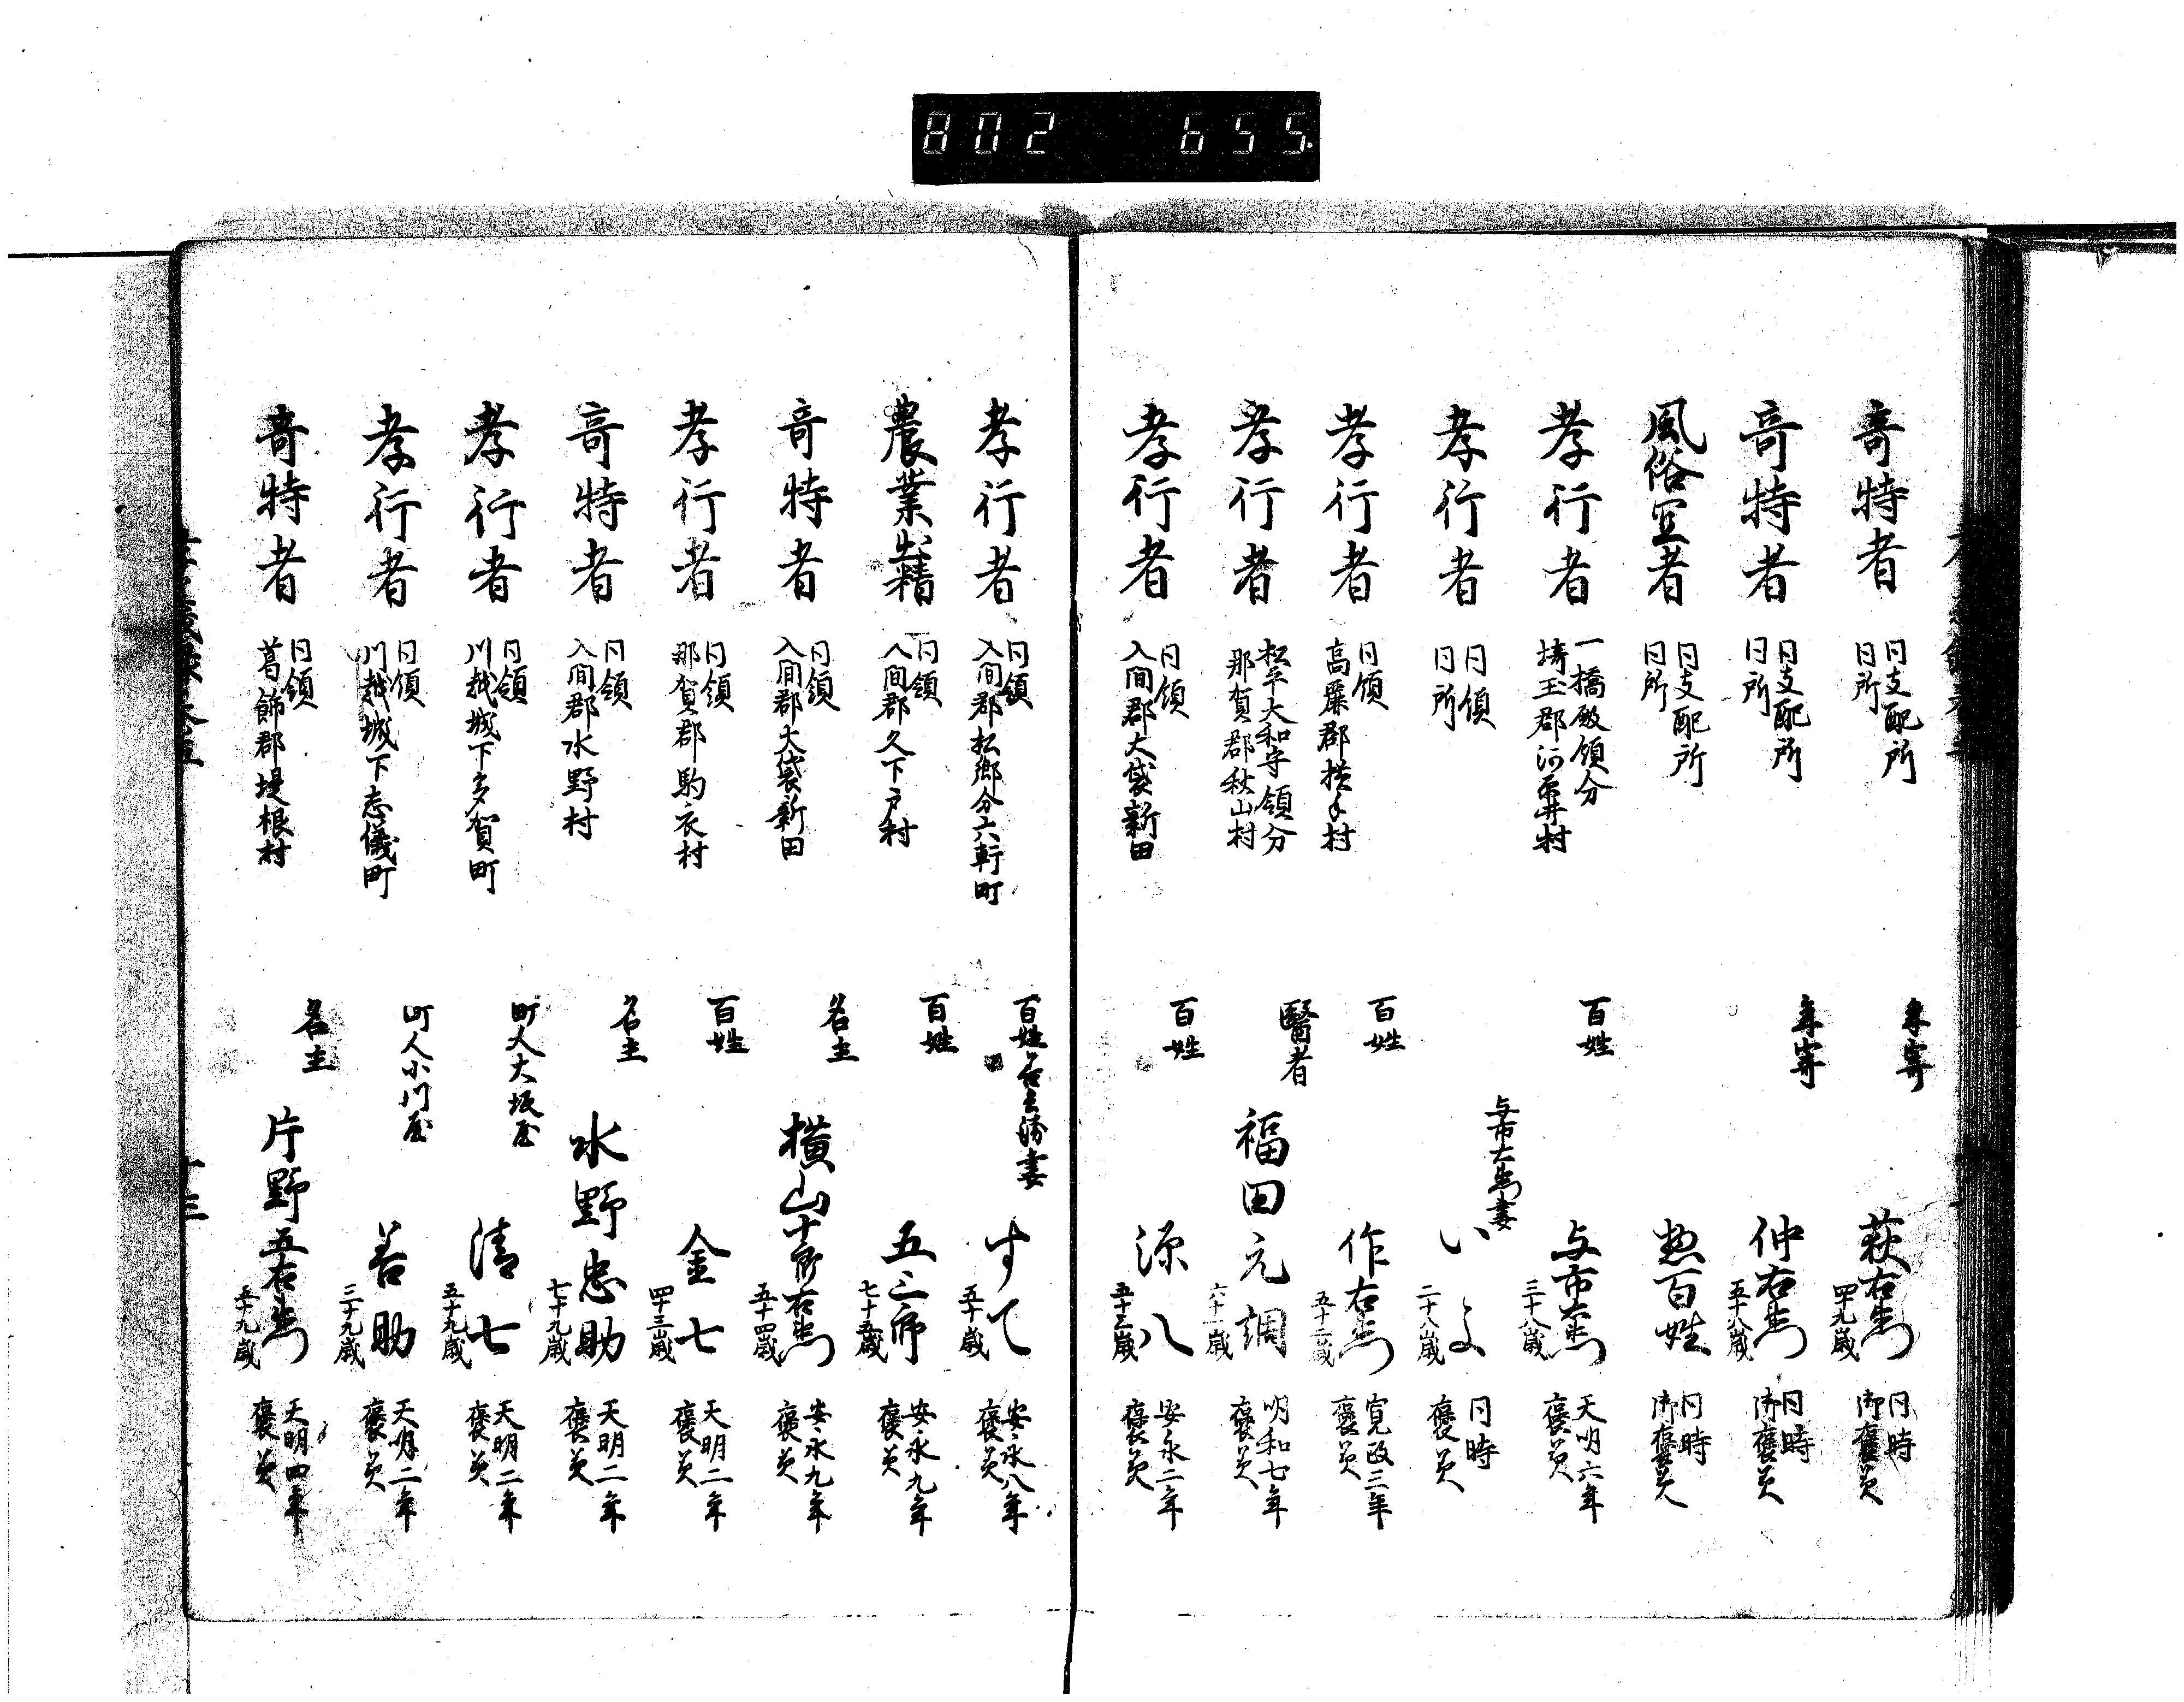 802 655
奇特者 同支配所 同所 年寄 萩右衛門 四十九歳 同時 御褒美
奇特者 同支配所 同所 年寄 仲右衛門 五十八歳 同時 御褒美
風俗宜者 同支配所 同所 惣百姓 同時 御褒美
孝行者 一橋殿領分 埼玉郡河原井村 百姓 与市右衛門 三十八歳 天明六年 褒美
孝行者 同領 同所 与市右衛門妻 いよ 二十八歳 同時 褒美
孝行者 同領 高麗郡横手村 百姓 作右衛門 寛政三年 褒美
孝行者 松平大和守領分 那賀郡秋山村 醫者 福田元調 六十一歳 明和七年 褒美
孝行者 同領 入間郡大袋新田 百姓 源八 五十三歳 安永二年 褒美
孝行者 同領 入間郡松郷分六軒町 百姓 妻 すて 五十歳 安永八年 褒美
農業出精 同領 入間郡久下戸村 百姓 五郎 七十五歳 安永九年 褒美
奇特者 同領 入間郡大袋新田 名主 横山十郎右衛門 五十四歳 安永九年 褒美
孝行者 同領 那賀郡駒衣村 百姓 金七 四十三歳 天明二年 褒美
奇特者 同領 入間郡水野村 名主 水野忠助 七十九歳 天明二年 褒美
孝行者 同領 川越城下多賀町 町人大坂屋 清七 五十九歳 天明二年 褒美
孝行者 同領 川越城下志儀町 町人小川屋 善助 三十九歳 天明二年 褒美
奇特者 同領 葛飾郡堤根村 名主 片野五右衛門 五十九歳 天明四年 褒美